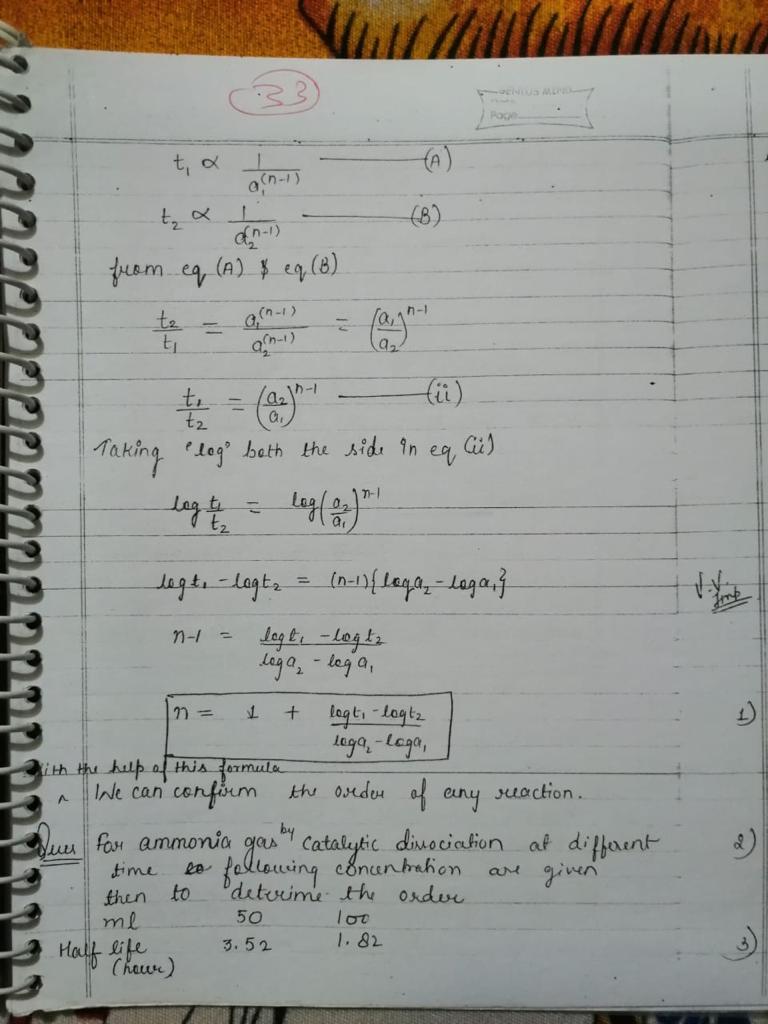 33
GENIUS MIND
Page
t₁ ∝ 1/a₁^(n-1) — (A)
t₂ ∝ 1/a₂^(n-1) — (B)
from eq (A) & eq (B)
t₂/t₁ = a₁^(n-1)/a₂^(n-1) = (a₁/a₂)^n-1
t₁/t₂ = (a₂/a₁)^n-1 — (ii)
Taking "log" both the side in eq (ii)
log t₁/t₂ = log(a₂/a₁)^n-1
logt₁ - logt₂ = (n-1){loga₂ - loga₁}
V.V. Imp
n-1 = logt₁ - logt₂ / loga₂ - loga₁
n = 1 + logt₁ - logt₂ / loga₂ - loga₁
1)
with the help of this formula
^ We can confirm the order of any reaction.
Ques for ammonia gas by catalytic dissociation at different
2)
time following concentration are given
then to deterime the order
ml 50 100
Half life 3.52 1.82
3)
(hour)